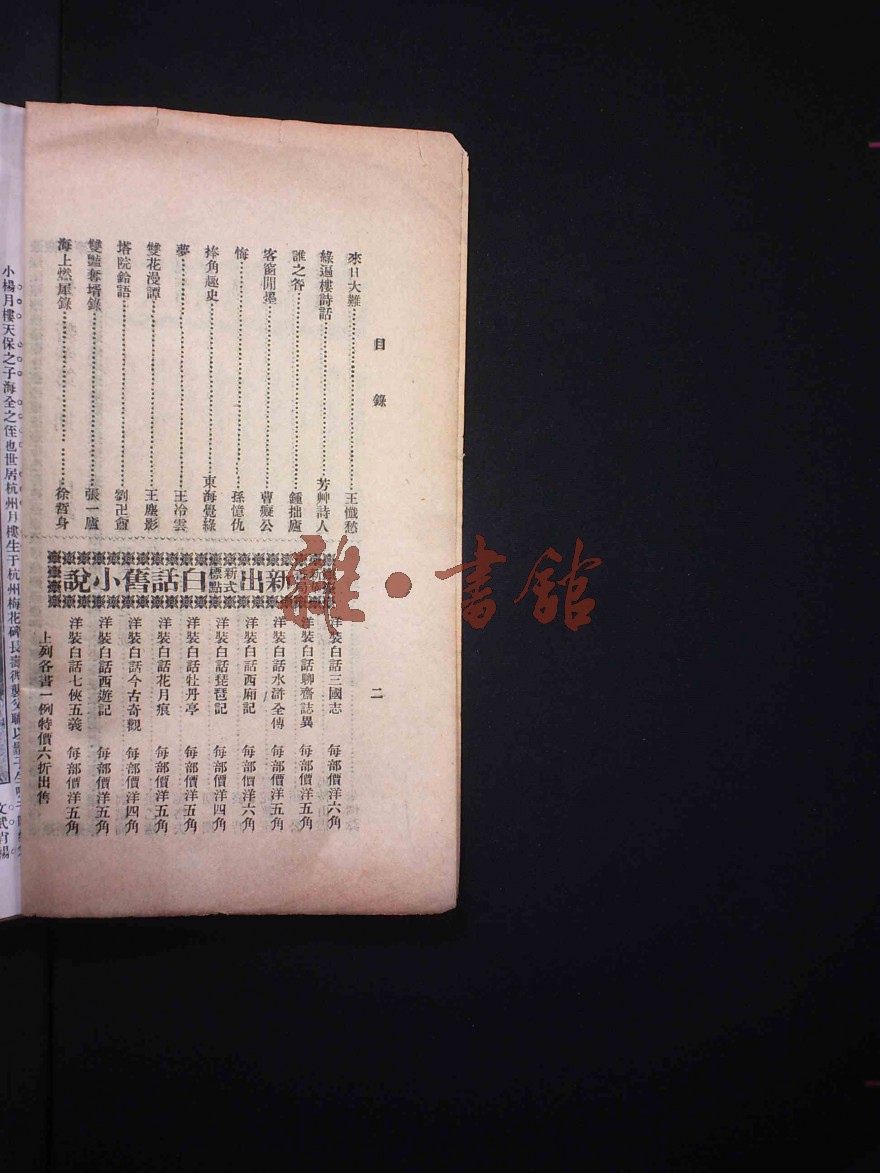 目錄
來日大難 王懺愁
綠滿樓詩話 芳艸詩人
誰之咎 鍾拙廬
客窗閒墨 曹癡公
悔 孫憶仇
捧角趣史 東海覺綠
夢 王冷雲
雙花漫譚 王塵影
塔院鈴語 劉卍盦
雙豔奪壻錄 張一廬
海上燃犀錄 徐哲身
新出新式標點白話舊小說
洋裝白話三國志 每部價洋六角
洋裝白話聊齋誌異 每部價洋五角
洋裝白話水滸全傳 每部價洋五角
洋裝白話西廂記 每部價洋六角
洋裝白話琵琶記 每部價洋四角
洋裝白話牡丹亭 每部價洋五角
洋裝白話花月痕 每部價洋五角
洋裝白話今古奇觀 每部價洋四角
洋裝白話西遊記 每部價洋五角
洋裝白話七俠五義 每部價洋五角
上列各書一例特價六折出售
二
小楊月樓天保之子海全之侄也世居杭州月樓生于杭州梅花碑長
雜·書館